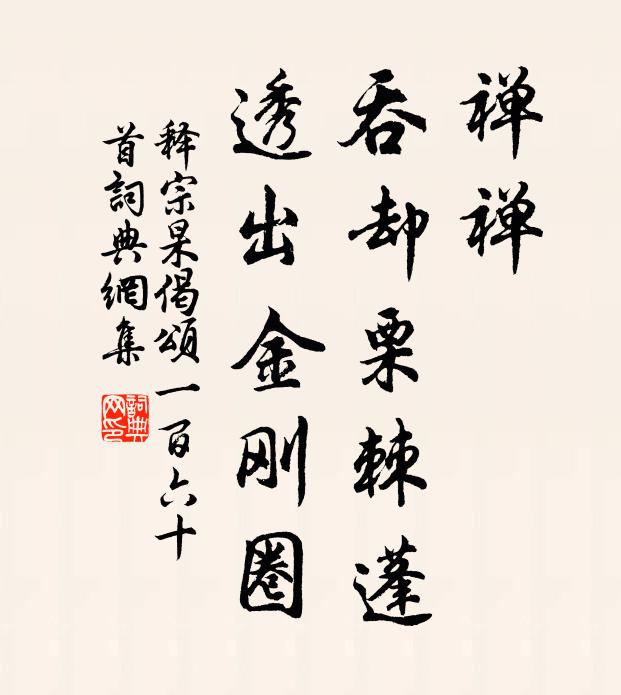 禅禅
吞却栗棘蓬
透出金刚圈
释宗杲偈頌一百六十
首詞典網集
詞典
网印